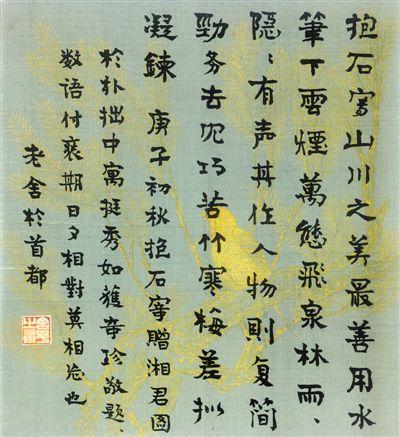 抱石寫山川之美最善用水
筆下雲煙萬態飛泉林雨、
隱、有声其作人物則复简
勁务去巧苦竹寒梅差拟
凝鍊 庚子初秋抱石贈湘君圖
於朴拙中寓挺秀如獲奇珍敬題、
数语付裱期日夕相對莫相忘也
老舍於首都